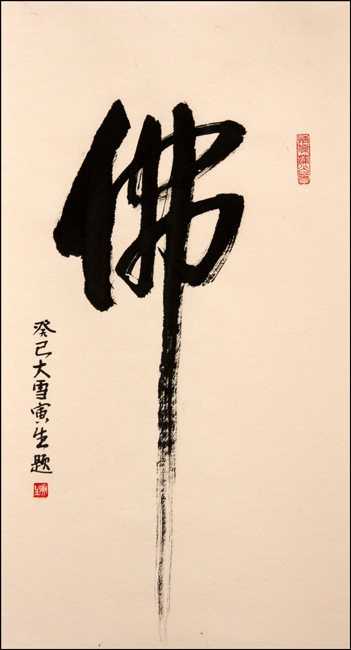 佛
癸巳大雪寅生题